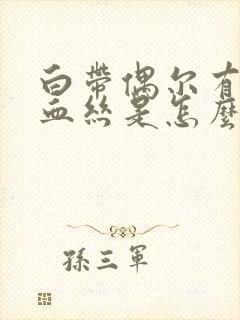 白带偶尔有
血丝是怎麼
孫三軍